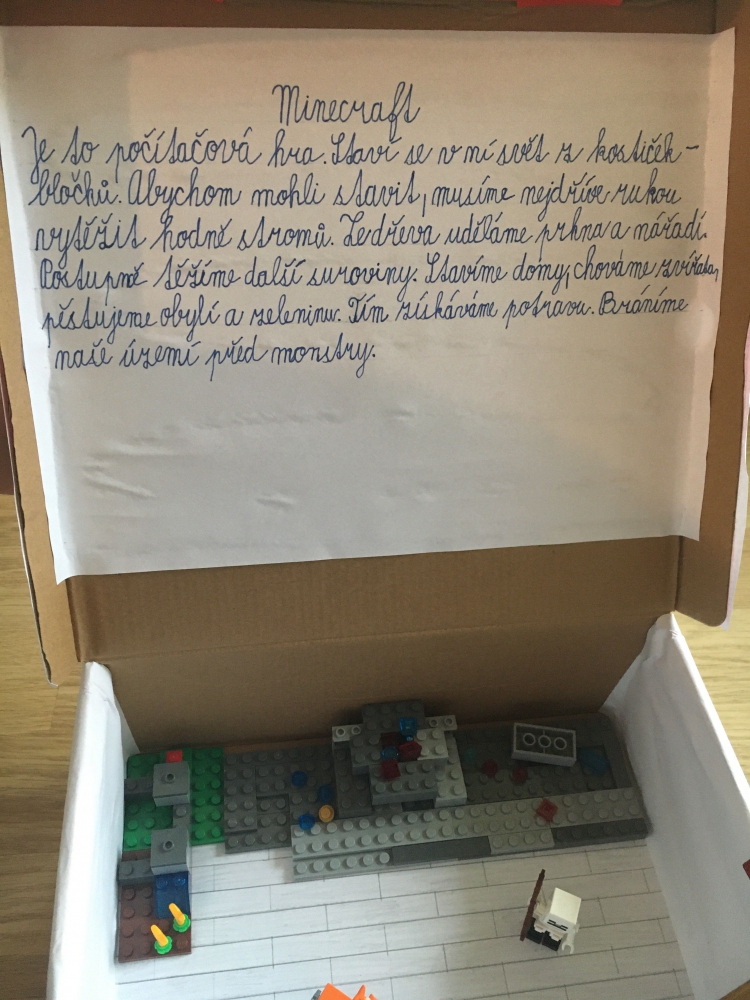 Minecraft
Je to počítačová hra. Staví se v ní svět z kostiček –
bločků. Abychom mohli stavit, musíme nejdříve rukou
vytěžit hodně stromů. Ze dřeva uděláme prkna a nářadí.
Postupně těžíme další suroviny. Stavíme domy, chováme zvířata,
pěstujeme obylí a zeleninu. Tím získáváme potravu. Bráníme
naše území před monstry.